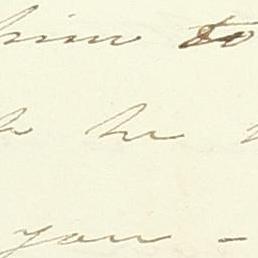 him to
he
you -